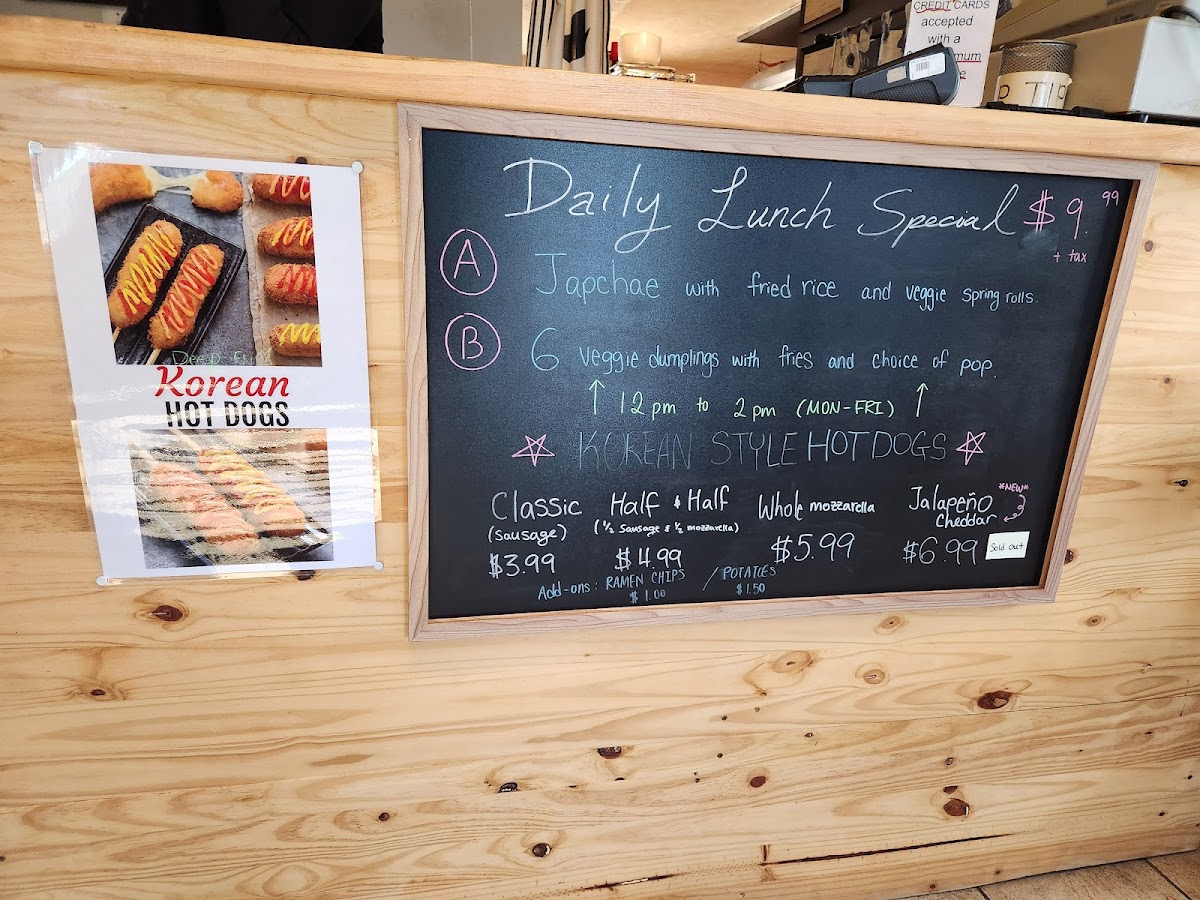 CREDIT CARDS
accepted
with a
TIP
Deep Fried
Korean
HOT DOGS
Daily Lunch Special $9.99
+ tax
A Japchae with fried rice and veggie spring rolls.
B 6 veggie dumplings with fries and choice of pop.
↑ 12 pm to 2 pm (MON-FRI) ↑
☆ KOREAN STYLE HOT DOGS ☆
Classic
(sausage)
$3.99
Half & Half
(½ Sausage & ½ mozzarella)
$4.99
Whole mozzarella
$5.99
*NEW*
Jalapeño
Cheddar
$6.99
Sold out
Add-ons: RAMEN CHIPS / POTATOES
$1.00 $1.50